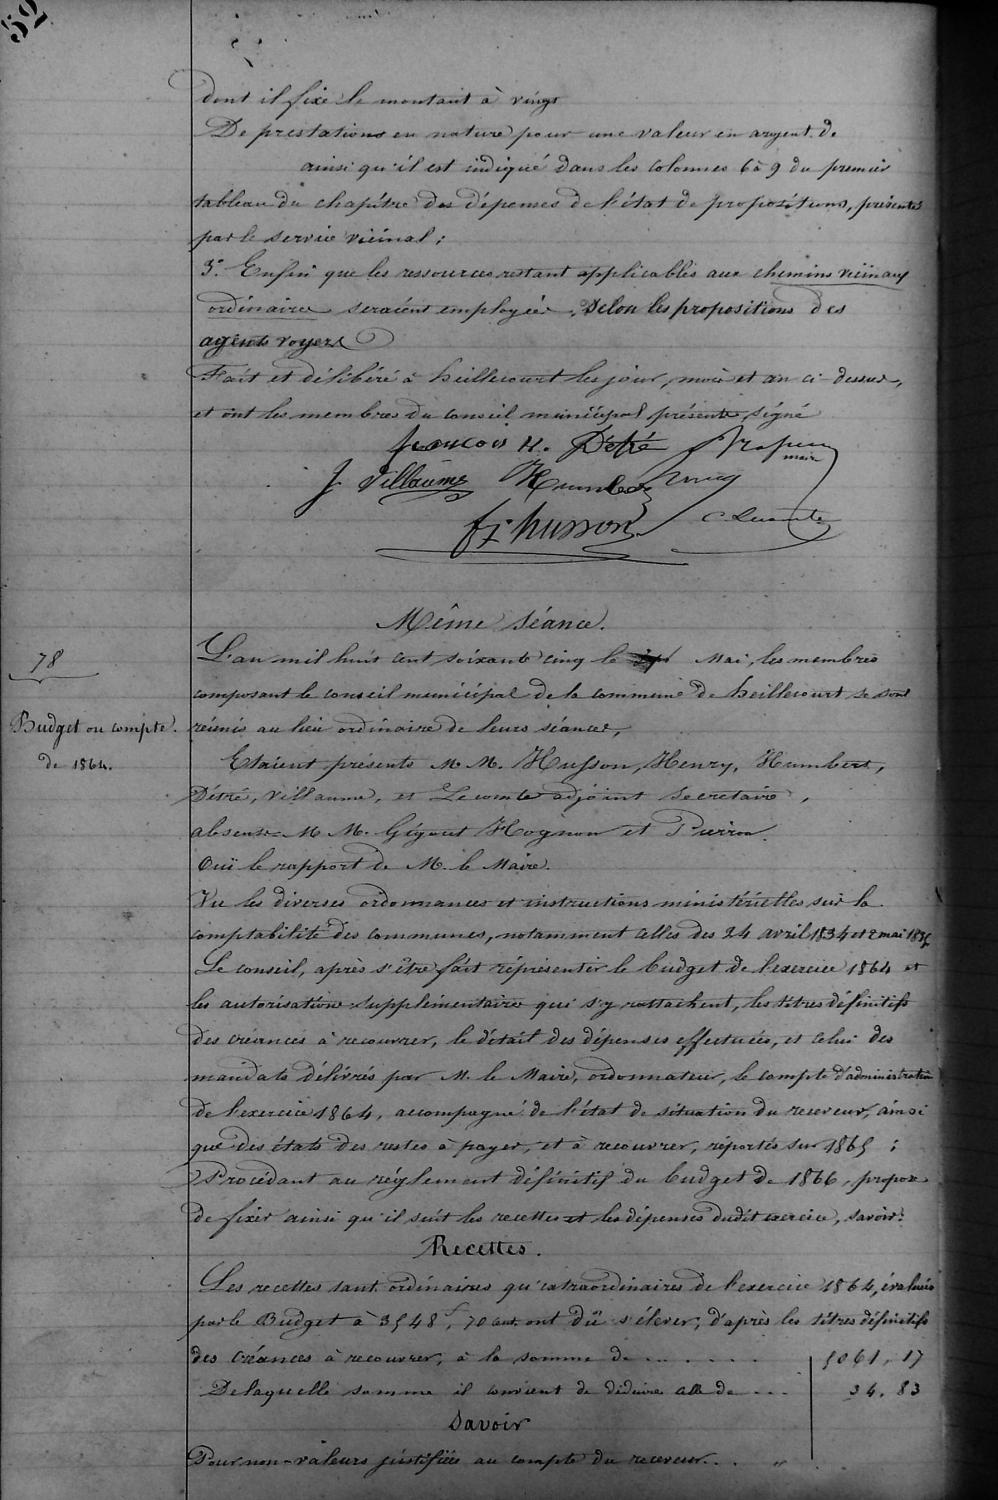 52
dont il fixe le montant à vingt
De prestations en nature pour une valeur en argent de
ainsi qu'il est indiqué dans les colonnes 6 à 9 du premier
tableau du chapitre des dépenses de l'état de propositions, présentés
par le service vicinal ;
3.° Enfin que les ressources restant applicables aux chemins vicinaux
ordinaires seraient employées, selon les propositions des
agents voyers
Fait et délibéré à heillecourt les jour, mois et an ci-dessus,
et ont les membres du conseil municipal présents, signé
françois H. Détré
maire
J Villaume Humbert
fx husson C Lecomte
Même séance.
78
Budget ou compte
de 1864.
L'an mil huit cent soixante cinq le Mai, les membres
composant le conseil municipal de la commune de heillecourt se sont
réunis au lieu ordinaire de leurs séances,
Etaient présents M M. Husson, Henry, Humbert,
Détré, Villaume, et Lecomte adjoint secretaire,
absents M M. Gigout Hognon et Pierron.
Ouï le rapport de M. le Maire.
Vu les diverses ordonnances et instructions ministérielles sur la
comptabilité des communes, notamment celles des 24 avril 1834 et 2 mai 1835
Le conseil, après s'être fait réprésenter le budget de l'exercice 1864 et
les autorisations supplémentaire qui s'y rattachent, les titres définitifs
des créances à recouvrer, le détail des dépenses effectuées, et celui des
mandats délivrés par M. le Maire, ordonnateur, le compte d'administration
de l'exercice 1864, accompagné de l'état de situation du receveur, ainsi
que des états des restes à payer, et à recouvrer, réportés sur 1865 ;
Procédant au réglement définitif du budget de 1866, propose
de fixer ainsi qu'il suit les recettes et les dépenses dudit exercice, savoir :
Recettes.
Les recettes tant ordinaires qu'extraordinaires de l'exercice 1864, évaluées
par le Budget à 3548f, 70 cent, ont dû s'élever, d'après les titres définitifs
des créances à recouvrer, à la somme de . . . . . . 5061, 17
De laquelle somme il convient de déduire celle de . . . 34. 83
Savoir
Pour non-valeurs justifiées au compte du receveur . . . "